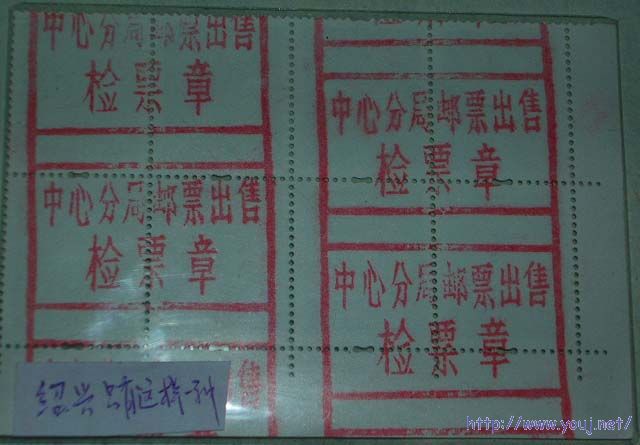 中心分局邮票出售
检票章
中心分局邮票出售
检票章
中心分局邮票出售
检票章
中心分局邮票出售
检票章
售
绍兴只有这样一种
http://www.youj.net/